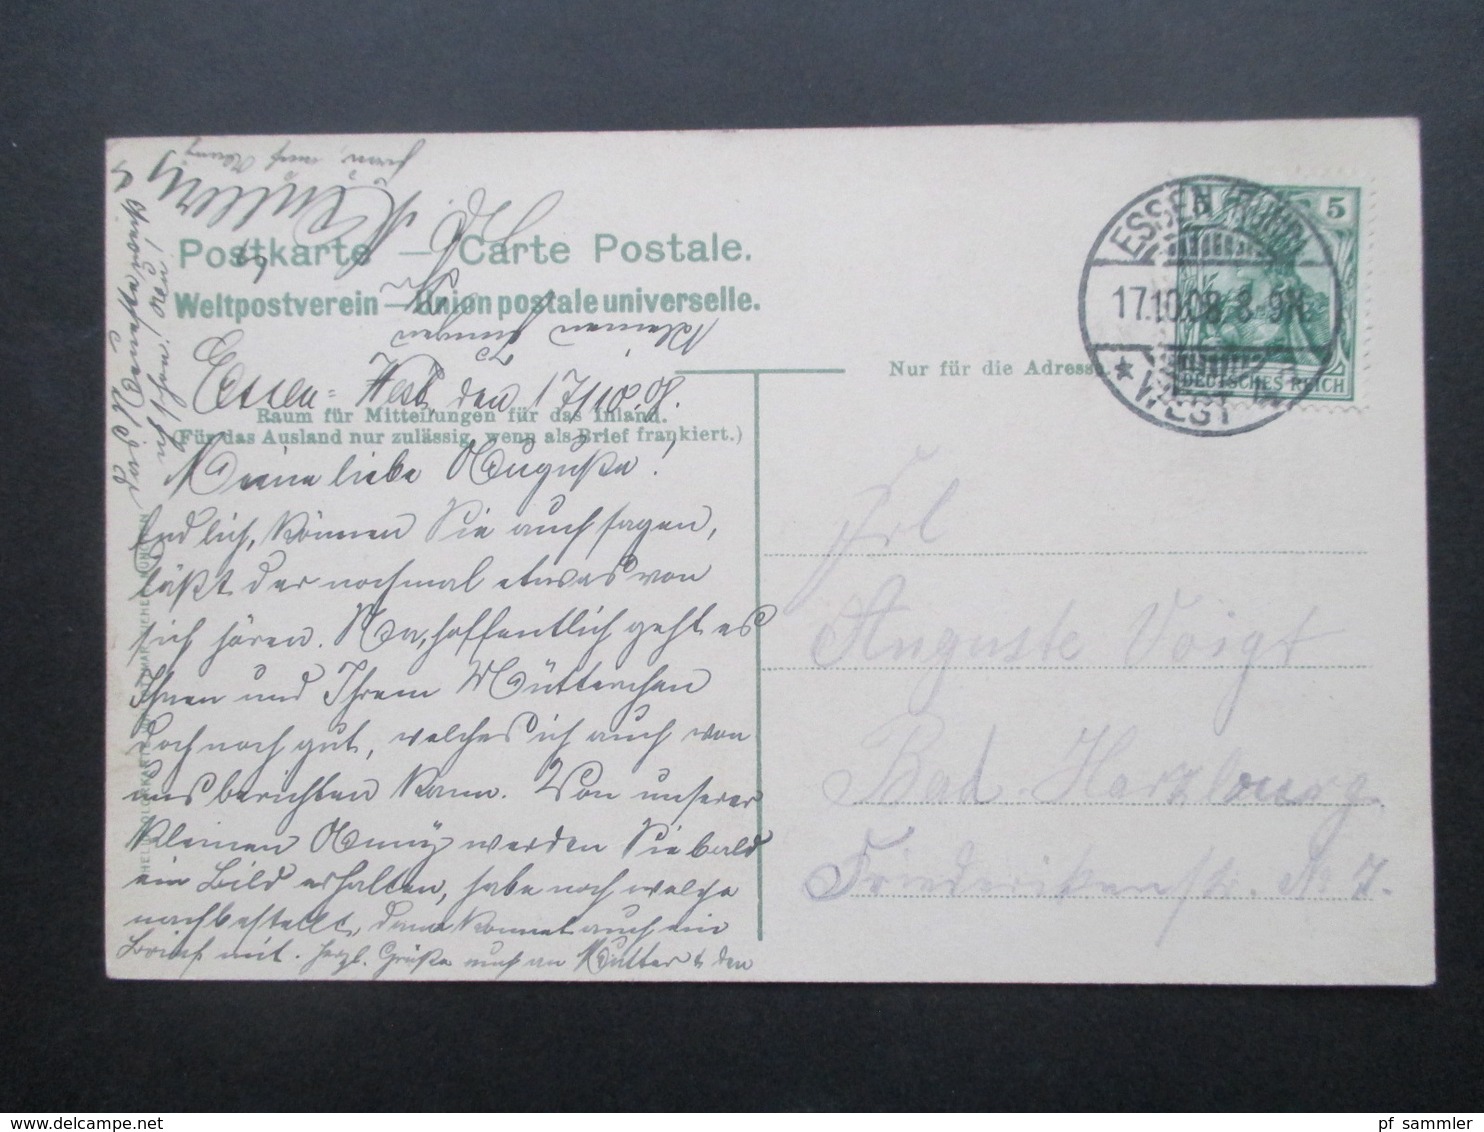 Postkarte — Carte Postale.
Weltpostverein — Union postale universelle.
kleinen Jungen
Essen-West, den 17/10.08.
Raum für Mitteilungen für das Inland.
(Für das Ausland nur zulässig, wenn als Brief frankiert.)
Meine liebe Auguste!
Endlich, können Sie auch sagen,
läßt der nochmal etwas von
sich hören. Na, hoffentlich geht es
Ihnen und Ihrem Mütterchen
noch gut, welches ich auch von
uns berichten kann. Von unserer
kleinen werden Sie bald
ein Bild erhalten, habe noch welche
nachbestellt, dann kommt auch ein
Brief mit. Herzl. Grüße auch an Mutter & den
ESSEN (RUHR)
17.10.08. 8-9N.
* WEST
5
DEUTSCHES REICH
Nur für die Adresse.
Frl
Auguste Voigt
Bad Harzburg.
Friederikenstr. No 7.
pf_sammler